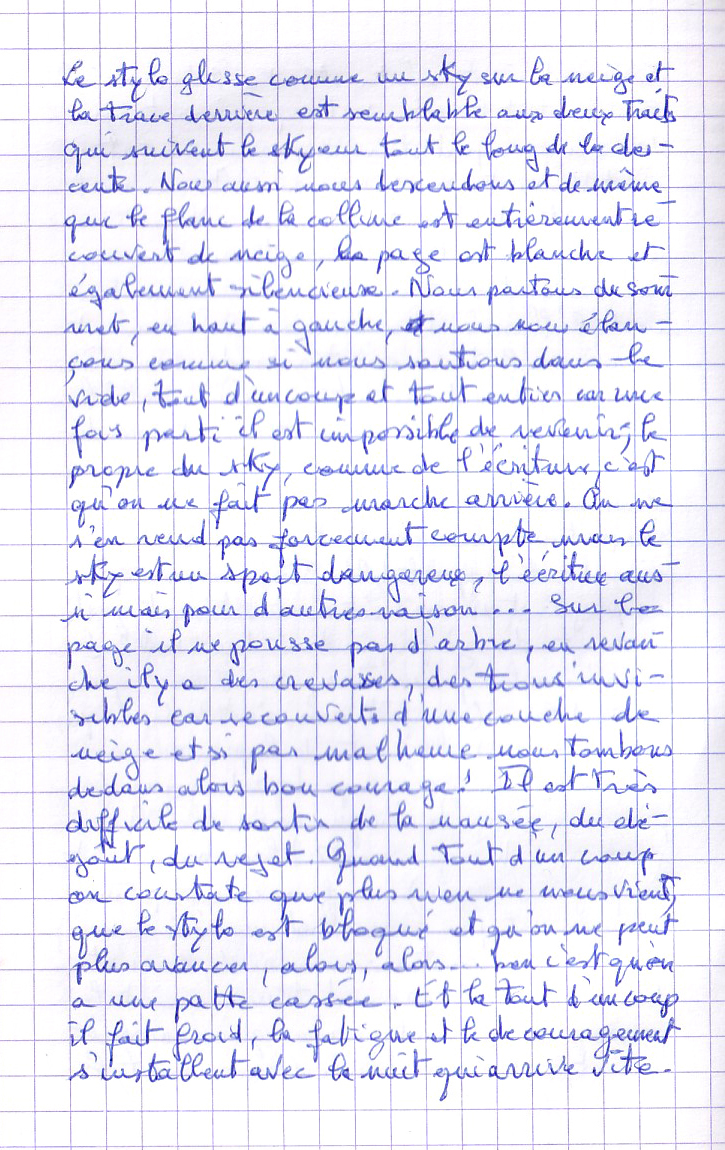 Le stylo glisse comme un sky sur la neige et
la trace derrière est semblable aux deux traits
qui suivent le skyeur tout le long de la des-
cente. Nous aussi nous descendons et de même
que le flanc de la colline est entièrement re
couvert de neige, la page est blanche et
également silencieuse. Nous partons du som
met, en haut à gauche, et nous nous élan-
çons comme si nous sautions dans le
vide, tout d'un coup et tout entier car une
fois parti il est impossible de revenir, le
propre du sky, comme de l'écriture, c'est
qu'on ne fait pas marche arrière. On ne
s'en rend pas forcement compte mais le
sky est un sport dangereux, l'écriture aus
si mais pour d'autres raison... Sur la
page il ne pousse pas d'arbre, en revan
che il y a des crevasses, des trous invi-
sibles car recouverts d'une couche de
neige et si par malheur nous tombons
dedans alors bon courage! Il est très
difficile de sortir de la nausée, du dé-
goût, du rejet. Quand tout d'un coup
on constate que plus rien ne nous vient,
que le stylo est bloqué et qu'on ne peut
plus avancer, alors, alors... ben c'est qu'on
a une patte cassée. Et là tout d'un coup
il fait froid, la fatigue et le decouragement
s'installent avec la nuit qui arrive vite.